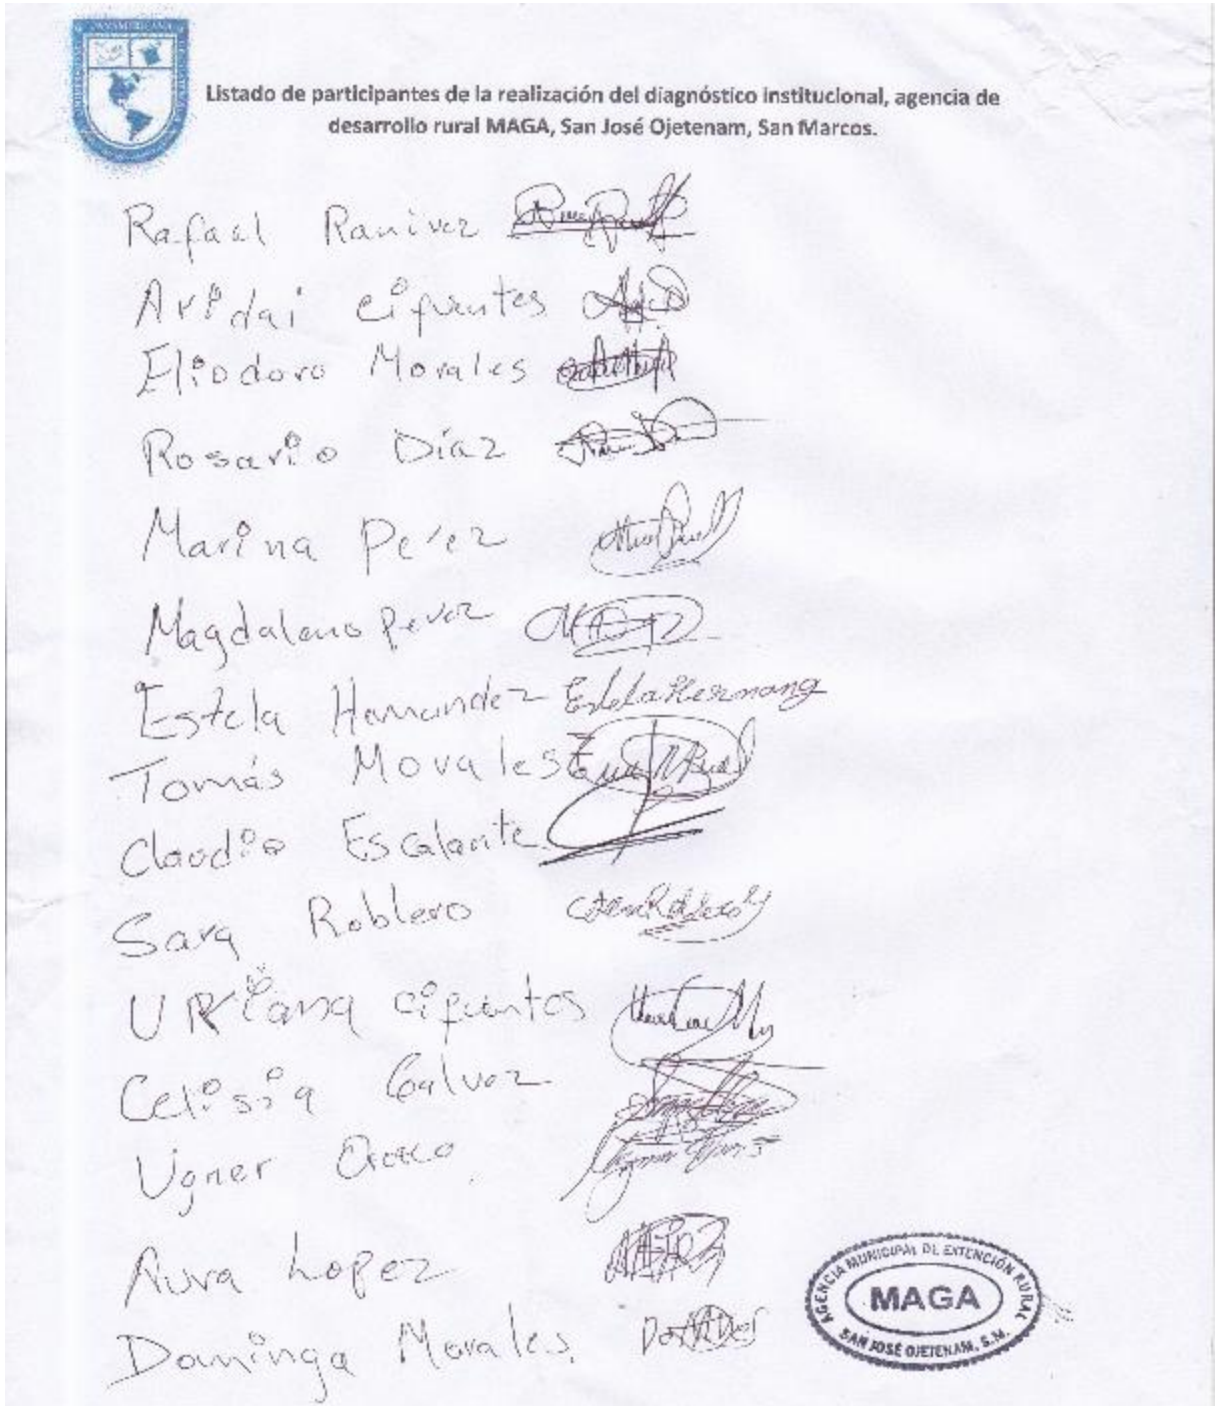 Listado de participantes de la realización del diagnóstico institucional, agencia de
desarrollo rural MAGA, San José Ojetenam, San Marcos.
Rafael Ramirez
Aridai cifuentes
Eliodoro Morales
Rosario Díaz
Marina Perez
Magdaleno Perez
Estela Hernandez Estela Hernang
Tomás Morales
Claudio Escalante
Sara Roblero
cifuentes
Celisia Galvez
Ugner
Aura Lopez
Dominga Morales
AGENCIA MUNICIPAL DE EXTENCIÓN RURAL
MAGA
SAN JOSÉ OJETENAM, S.M.